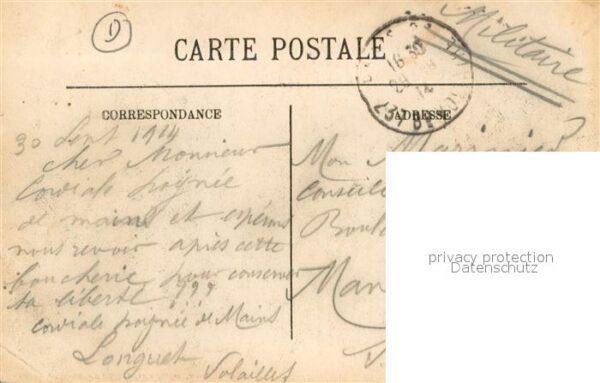 D
CARTE POSTALE
Militaire
16 30
14
CORRESPONDANCE
ADRESSE
30 Sept 1914
Cher Monsieur
Cordiale poignée
de mains et espérons
nous revoir après cette
boucherie pour conserver
sa liberté ???
Cordiale poignée de Mains
Longuet
Volailles
Mon
Conseil
Boule
Man
privacy protection
Datenschutz